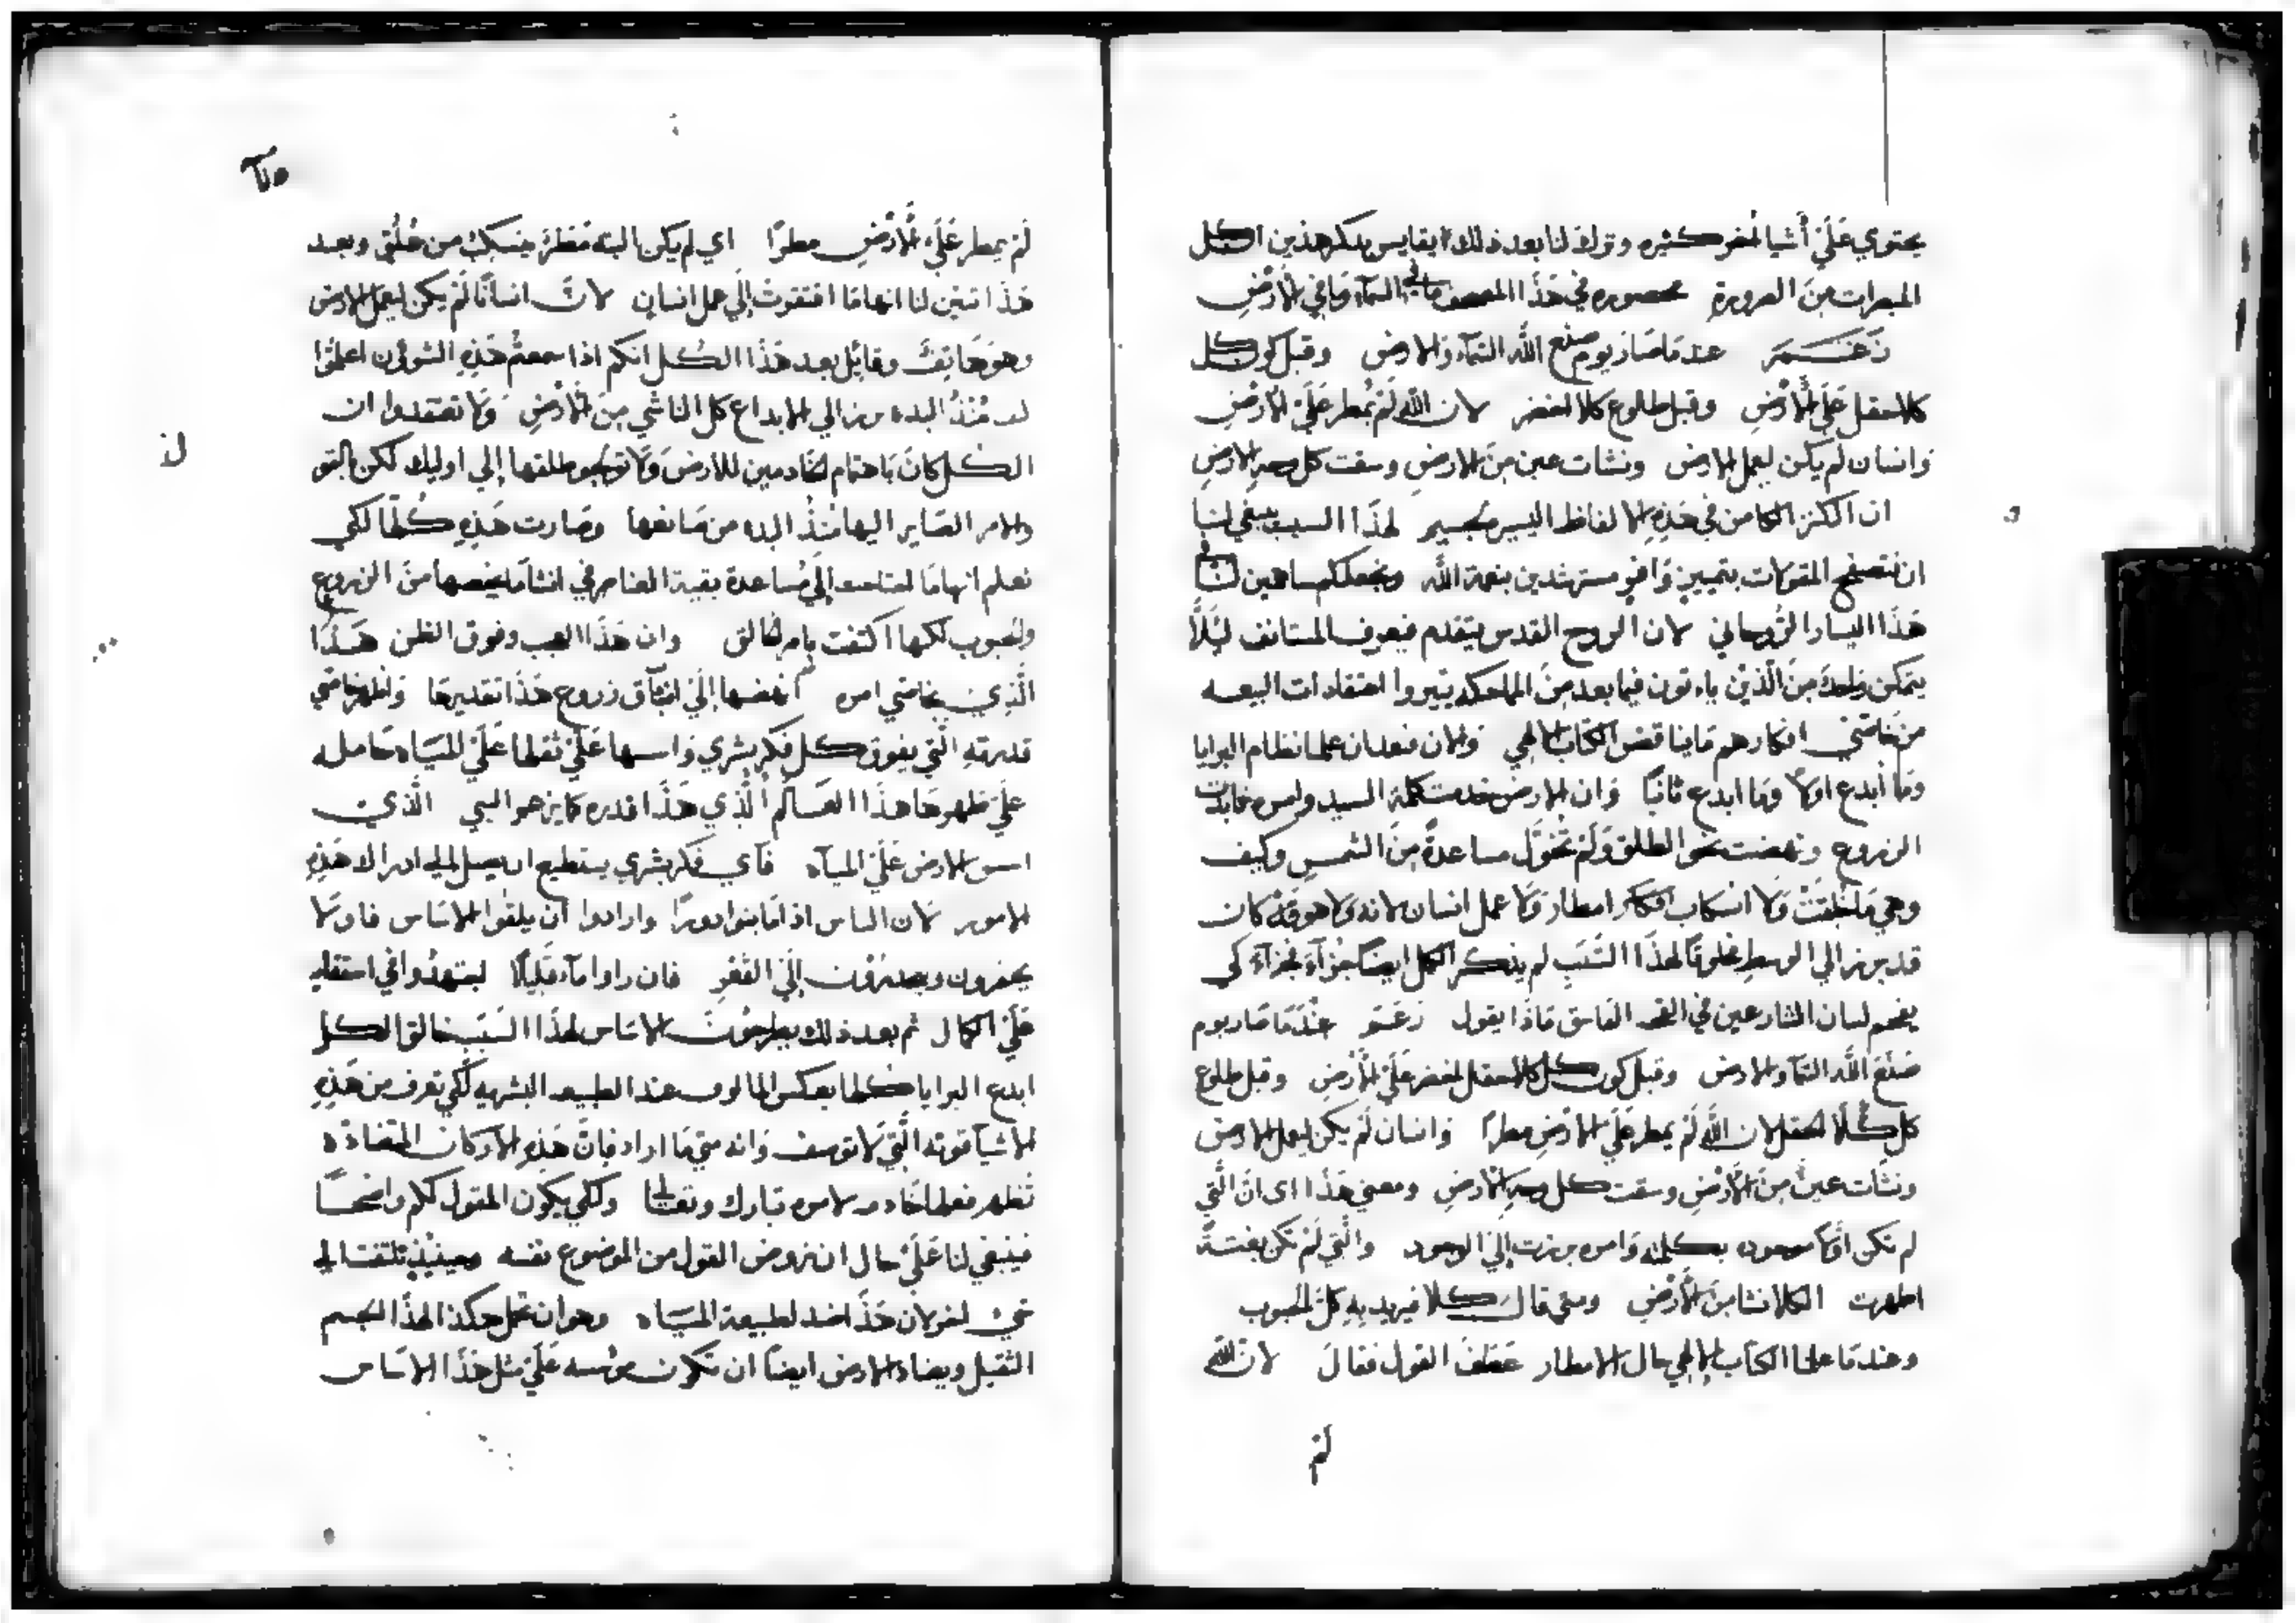 يحتوي عَلَيْ أشيا اُخر كثيره وترك لنا بعد ذلك ايقايس بذكر هذين الكل
المبرات من الضرورة محصوره في هَذَا المصحف مافي السمآء ومَا في الأرْضِ
زَعَـــمَ عندمَا صَار يوم صنع الله السَمآء وَالارض وقبل كون كل
كلا حقل عَلَي الأرْضِ وقبل طلوع كلا اخضر لان اللهَ لَمْ يُمطر عَلَيْ الأرْضِ
وَانسان لم يكن ليعمل الارض ونشات عين مِنَ الارضِ وسقت كل وجهِ الارضِ
ان الكنز الكامن في هَذِهِ الالفاظ اليسيره لجسيم لهذَا السبب ينبغي لنا
ان نتصفح المقولات بتمييزٍ وَافرٍ مسترشدين بنعمة الله ونجعلكم مساهمين لنا في
هَذَا اليسار الرُوحاني لان الروح القدس يتقدم فيعرف المستانف ليَلّاَ
يتمكن واحدٌ مِنَ الّذِيْن ياءتون فيما بعد مِنَ المماحكه يثيروا اعتقادات البيعه
من خَاصَتي افكارهم مَا يناقض الكتاب الالهي وَالان فبعد ان علمنا نظام البرايا
ومَا أبدع اولًا ومَا ابدع ثانيًا وَان الارض خدمت كلمة السيد وامره فابدت
الزروع ونهضت نحو الطلق وَلَمْ تخوَّل مساعدةً مِنَ الشمسِ وكيف
وهي مَا خُلِقَتْ وَلا انسكاب افكار امطار وَلا عمل انسان لانه وَلا هو وقته كان
قد برز الي الوسطِ مخلوقًا لهذَا السَبَبِ لم يذكر الكل ايضًا جُزآءً فجُزآءً كي
يفحم لسان المسَارعين في القحه الفَاسق مَاذَا يقول زَعَمَ عِنْدَمَا صَار يوم
صَنَعَ اللَّه السَمآ والارض وقبل كون كل كلا حقل اخضر عَلَيْ الأرْضِ وقبل طلوع
كل كُلّا حقل لان اللَّهَ لَمْ يمطر عَلَي الارْضِ مطرًا وَانسان لَمْ يكن ليعمل الارض
ونشَات عينٌ مِنَ الأرْضِ وسقت كل وجهِ الأرضِ ومعني هَذَا اي انَ الَّتي
لم تكن أوّلًا موجوده بكلمته وَامره برزت إلَيْ الوجود وَالَّتي لَمْ تكن بغتــةً
اظهرت الكلا نشا مِنَ الأرْضِ ومتي قال كلا فيريد بِهِ كلّ الحبوب
وعندمَا علمنا الكتاب الإلهي حال الامطار عَطَفَ القول فقَالَ لانَ اللّهَ
لَمْ
لَمْ يمطر عَلَي الأرْضِ مطرًا اي لم يكن البته مَطَرَ ينسكبُ من خُلُقٍ وبعد
هَذَا تبيّن لنا انها مَا افتقرتْ إلَي عمل انسانٍ لانَّ انسانًا لَمْ يكن ليعمل الارض
وهو هَاتِفٌ وقايِل بعد هَذَا الكُل انكم اذا سمعتُم هَذِهِ الشوؤن اعلَمُوا
مُنْذُ البدء برز الي الابداع كل الناشي مِنَ الأرْضِ وَلا تعتقدوا ان
الكُل كانَ بَاهتمام الخَادمين للارْضَ وَلا توَجهوا طلقها إلي اوليك لكن بالقو
والامر الصَاير اليها مُنْذُ البدء من صَانعها وصَارت هَذِهِ كُلّها لكي
نعلم انها مَا احتاجت إلَي مُساعدة بقية العناصر في انشا مَا يخصها منَ الزروع
والحبوب لكنها اكتفت بامر الخَالق وان هَذَا العجب وفوق الظن هَـذَا
الَّذِي بخَاصَتي امره انهضها إلَيْ انبثَاق زروع هَذَا تقديرها وَاظهر خَاصتي
قدرتهِ الّتي يفوق كل فكر بشري وَاسسها عَلَيْ ثقلها عَلَيْ الميَاه حَامله
عليْ ظهرهَا هذَا العَـالَم الَّذي هَذَا قدره كمَا يزعم النبي الَّذي
اسس الارض عَلَيْ الميآه فآي فكر بشري يستطيع ان يصل الي ادراك هَذِهِ
الامور لان الناس اذا مَا بنوا دورًا وارادوا أن يلقُوا الاسَاس فاولا
يحفرون ويصدُرُون إلَيْ القَعْرِ فان راوا مآء قَلِيلًا ليجتهدُوا في استقايه
عَلَيْ الكمال ثم بعد ذلك يطرحُونَ الاسَاس لهذَا السَبَبِ خَالق الكل
ابدع البرايا كلها بعكس المالوف عند الطبيعه البشريه لكي تعرف من هَذِهِ
الاشيآ قوته الّتي لا توصف وَانه متي مَا اراد فإنّ هَذِهِ الأركان المتضَادَه
تُظهر فعلها خَادمه لامره تبارك وتعَالي ولكي يكون المقول لكم واضحًـا
فينبغي لنا عَلَيْ حال ان نروض القول من الموضوع نفسه وحينيْذٍ نلتفت الي
شيٍ اخر لان هَذَا ضد لطبيعة الميَاه وهو ان تحمل هكذَا لهذَا الجسم
الثقيل ويضاد الارض ايضًا ان تكون موْسسه عَلَيْ مثل هَذَا الاسَاس